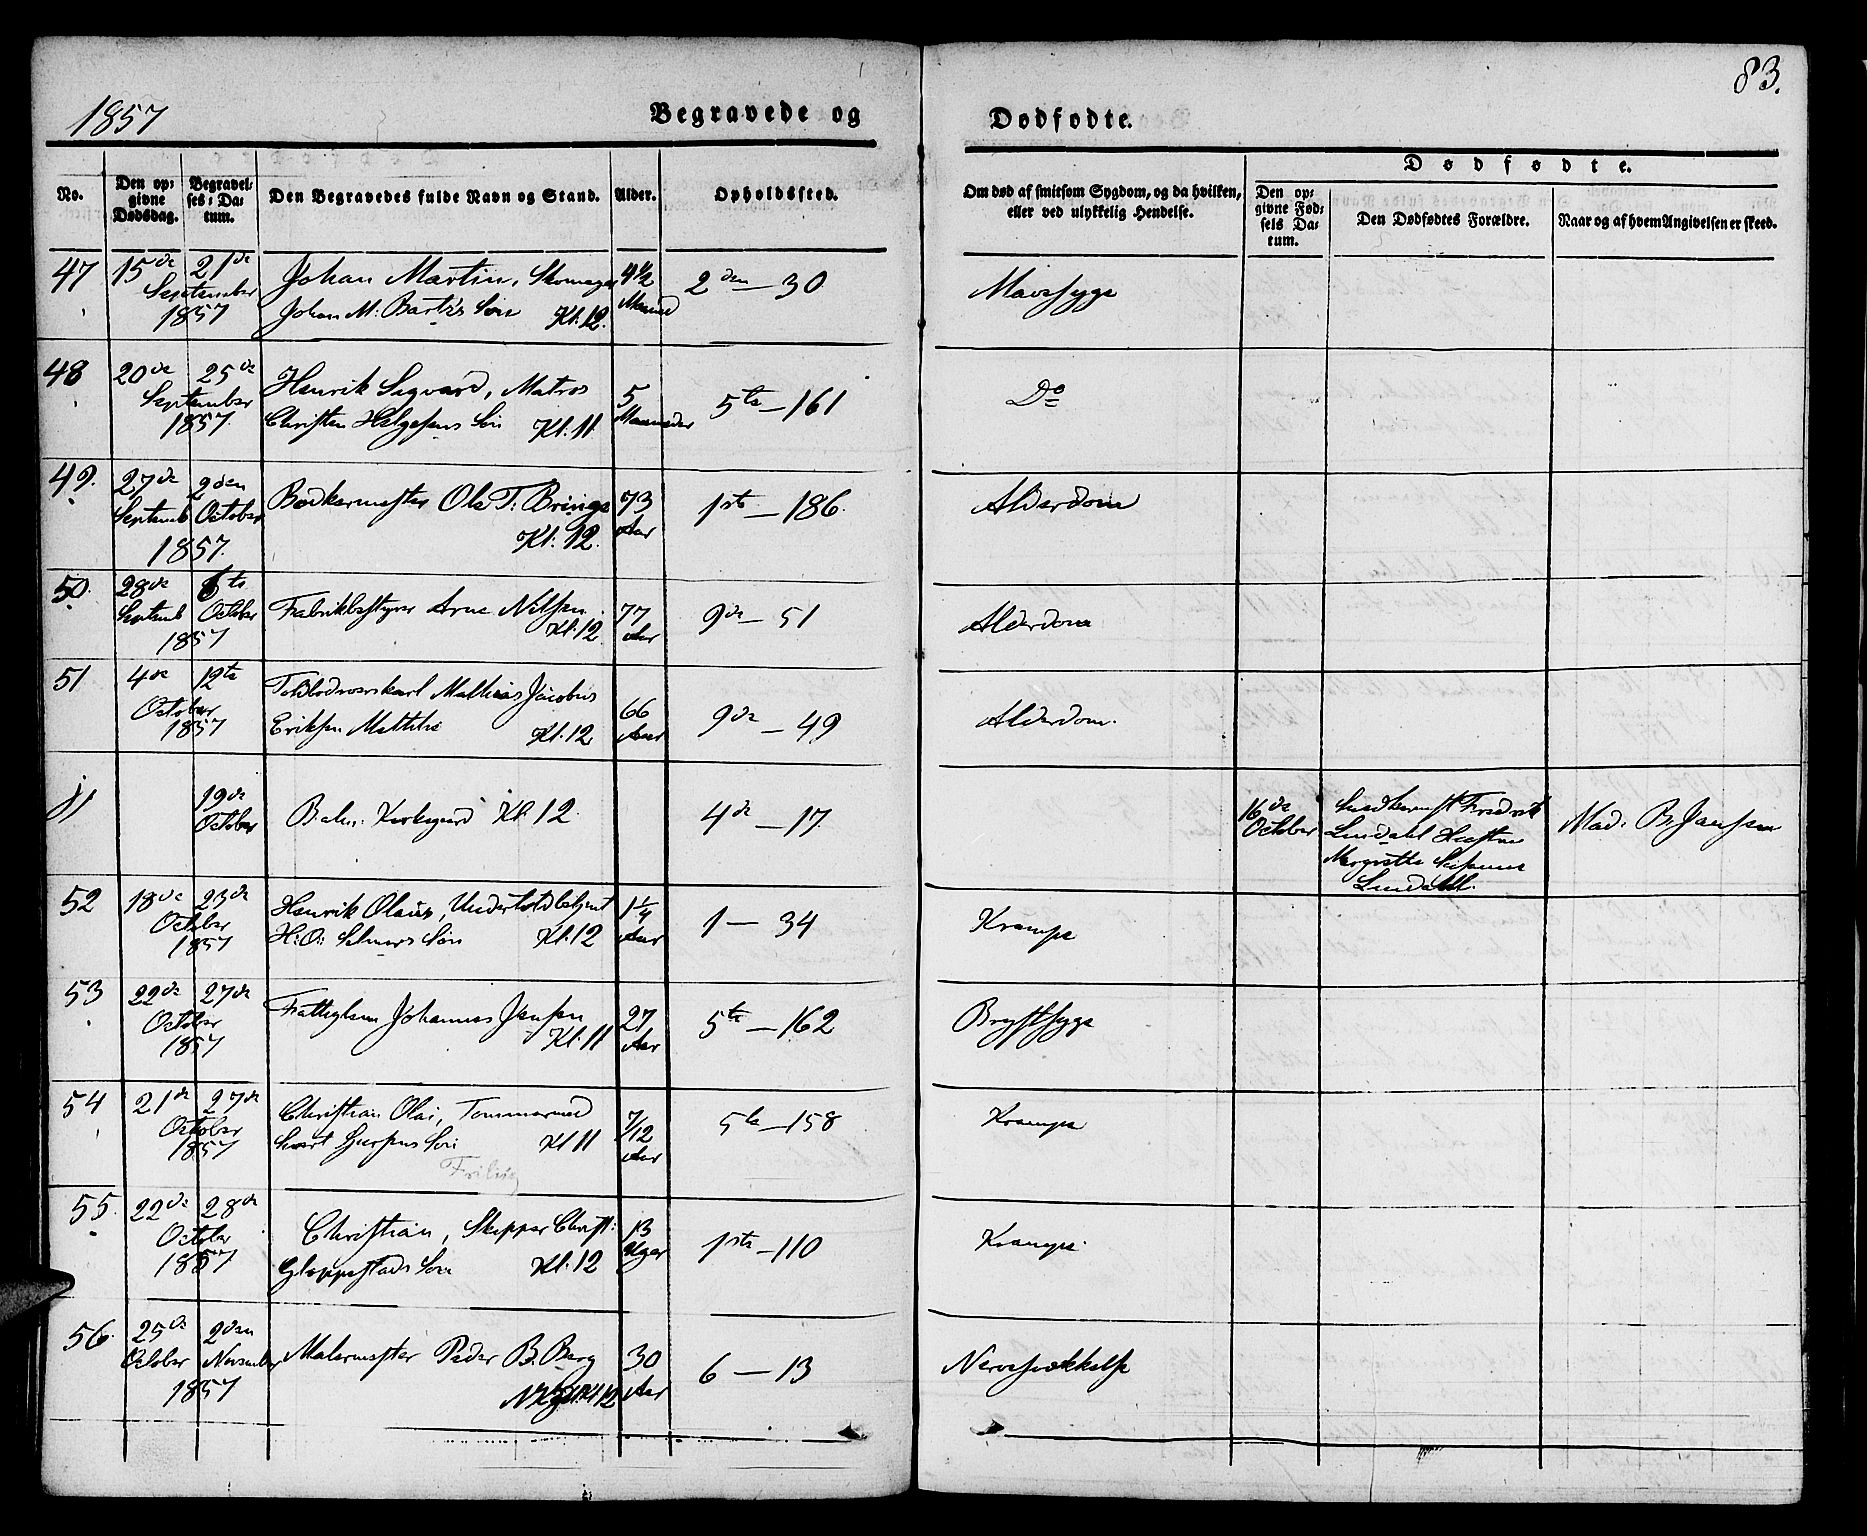 1857
Begravede og
Dødfødte.
83.
No.
Den op-
givne
Dødsdag.
Begravel-
ses-Da-
tum.
Den Begravedes fulde Navn og Stand.
Alder.
Opholdssted.
Om død af smitsom Sygdom, og da hvilken,
eller ved ulykkelig Hendelse.
Dødfødte.
Den op-
givne Fød-
sels Da-
tum.
Den Dødfødtes Forældre.
Naar og af hvem Angivelsen er skeed.
47 15de 21de Johan Martin, Skomager 4 1/2 2den — 30 Mavesyge
September
1857 Johan M: Bartz's Søn Kl: 12. Maaned
48 20de 25de Henrik Sigvard, Matros 5 5te — 161 Do
September
1857. Christen Helgesens Søn Kl: 11. Maaneder
49. 27de 2den Bødkermester Ole T: Bringe 73 1ste — 186. Alderdom
Septemb October Kl: 12. Aar
1857.
50. 28de 6te Fabrikbestyrer Arne Nilsen 77 9de — 51 Alderdom
Septemb October Kl: 12 Aar
1857
51 4de 12te Toldbodvarskarl Mathias Jacobus 66 9de — 49 Alderdom.
October
1857 Eriksen Kl. 12 Aar
19de
October Kirkegaard Kl. 12. 4de — 17. 16de
October Fredrik
Lindahl Hustru
Lindahl. Mad. B. Jansen
52 18de 23de Henrik Olaus, 1 1/4 1 — 34 Krampe
October
1857 H: O: Søn Kl. 12 Aar
53 22de 27de Fattiglem Johannes Jensen 27 5te — 162 Brystsyge
October Kl: 11 Aar
1857
54 21de 27de Christian Olai, Tømmermand 7/12 5te — 158 Krampe
October
1857 Søn Kl 11 Aar
55. 22de 28de Christian, Skipper Christ: 13 1ste — 110 Krampe
October
1857 Gloppestads Søn Kl. 12 Uger
56. 25de 2den Malermester Peder B. Berg 30 6 — 13 Nervesvækkelse
October November Kl 12 Aar
1857